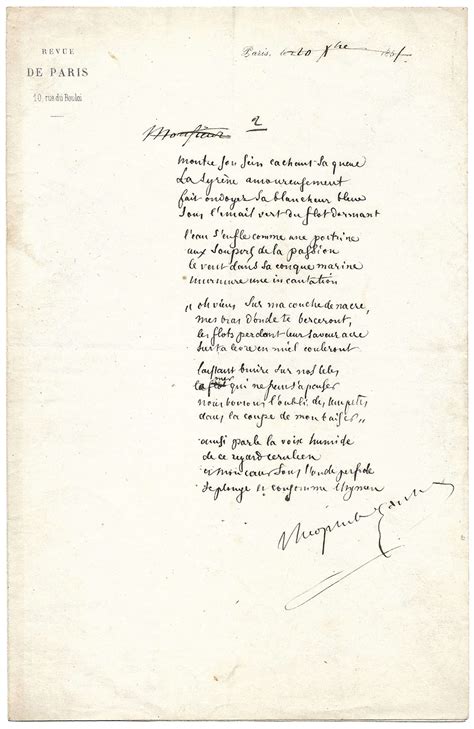 REVUE
DE PARIS
10, rue du Bouloi
Paris, le 10 Xbre 185
2
Monsieur
montre son sein cachant sa queue
La syrène amoureusement
fait ondoyer sa blancheur bleue
sous l'émail vert du flot dormant
l'eau s'enfle comme une poitrine
aux soupirs de la passion
le vent dans sa conque marine
murmure une incantation
" oh viens sur ma couche de nacre,
mes bras d'onde te berceront,
les flots perdant leur saveur acre
sur ta lèvre en miel couleront
laissant bruire sur nos têtes
la mer qui ne peut s'apaiser
nous boirons l'oubli des tempêtes
dans la coupe de mon baiser "
ainsi parle la voix humide
de ce regard céruléen
et mon cœur sous l'onde perfide
se plonge et consomme l'hymen
Théophile Gautier